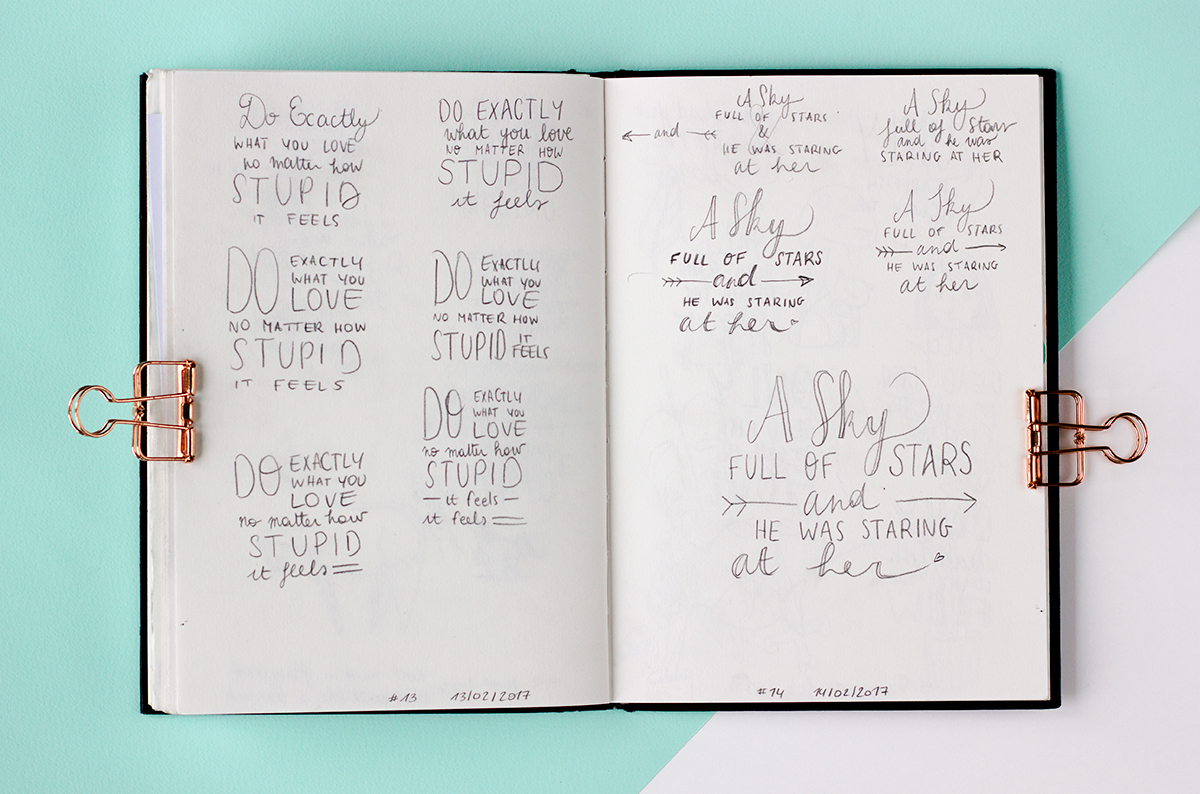 Do Exactly
WHAT YOU LOVE
no matter how
STUPID
IT FEELS
DO EXACTLY
what you love
NO MATTER HOW
STUPID
it feels
DO EXACTLY
WHAT YOU
LOVE
NO MATTER HOW
STUPID
IT FEELS
DO EXACTLY
WHAT YOU
LOVE
NO MATTER HOW
STUPID IT
FEELS
DO EXACTLY
WHAT YOU
LOVE
no matter how
STUPID
it feels
DO EXACTLY
WHAT YOU
LOVE
no matter how
STUPID
it feels
it feels
#13 13/02/2017
A Sky
FULL OF STARS
and &
HE WAS STARING
at her
A Sky
full of stars
and he was
STARING AT HER
A Sky
FULL OF STARS
and
HE WAS STARING
at her
A Sky
FULL OF STARS
and
HE WAS STARING
at her
A Sky
FULL OF STARS
and
HE WAS STARING
at her
#14 14/02/2017